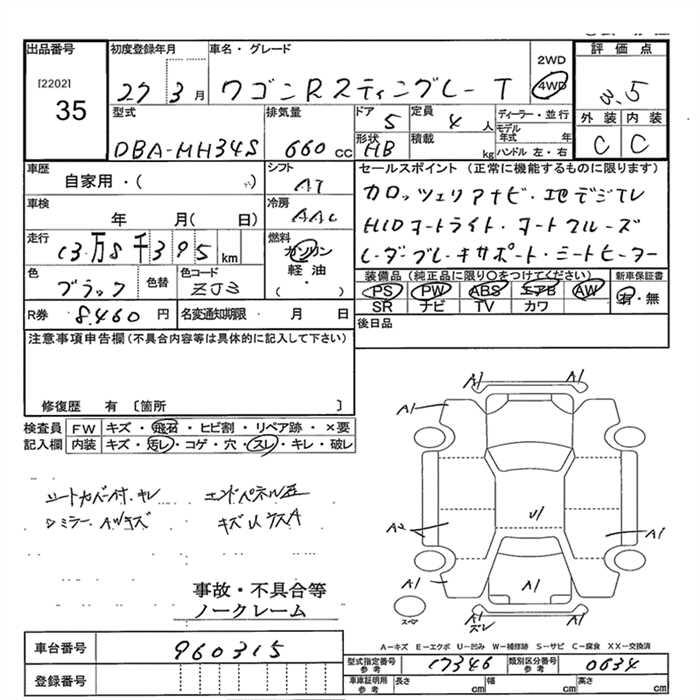 出品番号
[2202]
35
初度登録年月
27 3 月
車名・グレード
ワゴンRスティングレー T
2WD
4WD
評価点
3.5
外装 内装
C C
型式
DBA-MH34S
排気量
660 cc
ドア
5
定員
4 人
ディーラー・並行
モデル年式 年
ハンドル 左・右
形状
HB
積載
kg
車歴
自家用・( )
シフト
AT
セールスポイント (正常に機能するものに限ります)
カロッツェリアナビ・地デジTV
HIDオートライト・オートクルーズ
レーダーブレーキサポート・シートヒーター
車検
年 月( 日)
冷房
AAC
走行
13万8千395 km
燃料
ガソリン
軽油
( ・ )
色
ブラック
色替
色コード
ZJ3
装備品 (純正品に限り○をつけてください)
PS PW ABS エアB AW
SR ナビ TV カワ
新車保証書
有・無
R券 8,460 円
名変通知期限 月 日
後日品
注意事項申告欄 (不具合内容等は具体的に記入して下さい)
修復歴 有 〔箇所 〕
検査員記入欄
FW キズ・飛石・ヒビ割・リペア跡・×要
内装 キズ・汚レ・コゲ・穴・スレ・キレ・破レ
シートカバー付、キレ
エンドパネル歪
ミラー、AツキズA
キズUケスA
事故・不具合等
ノークレーム
A1 A1
A1
U1
A2
A1
A1
A1
A1
ズレ
スペア
A-キズ E-エクボ U-凹み W-補修跡 S-サビ C-腐食 XX-交換済
車台番号 960315
登録番号
型式指定番号 参考 17346
類別区分番号 参考 0634
車庫証明用 参考 長さ cm 幅 cm 高さ cm